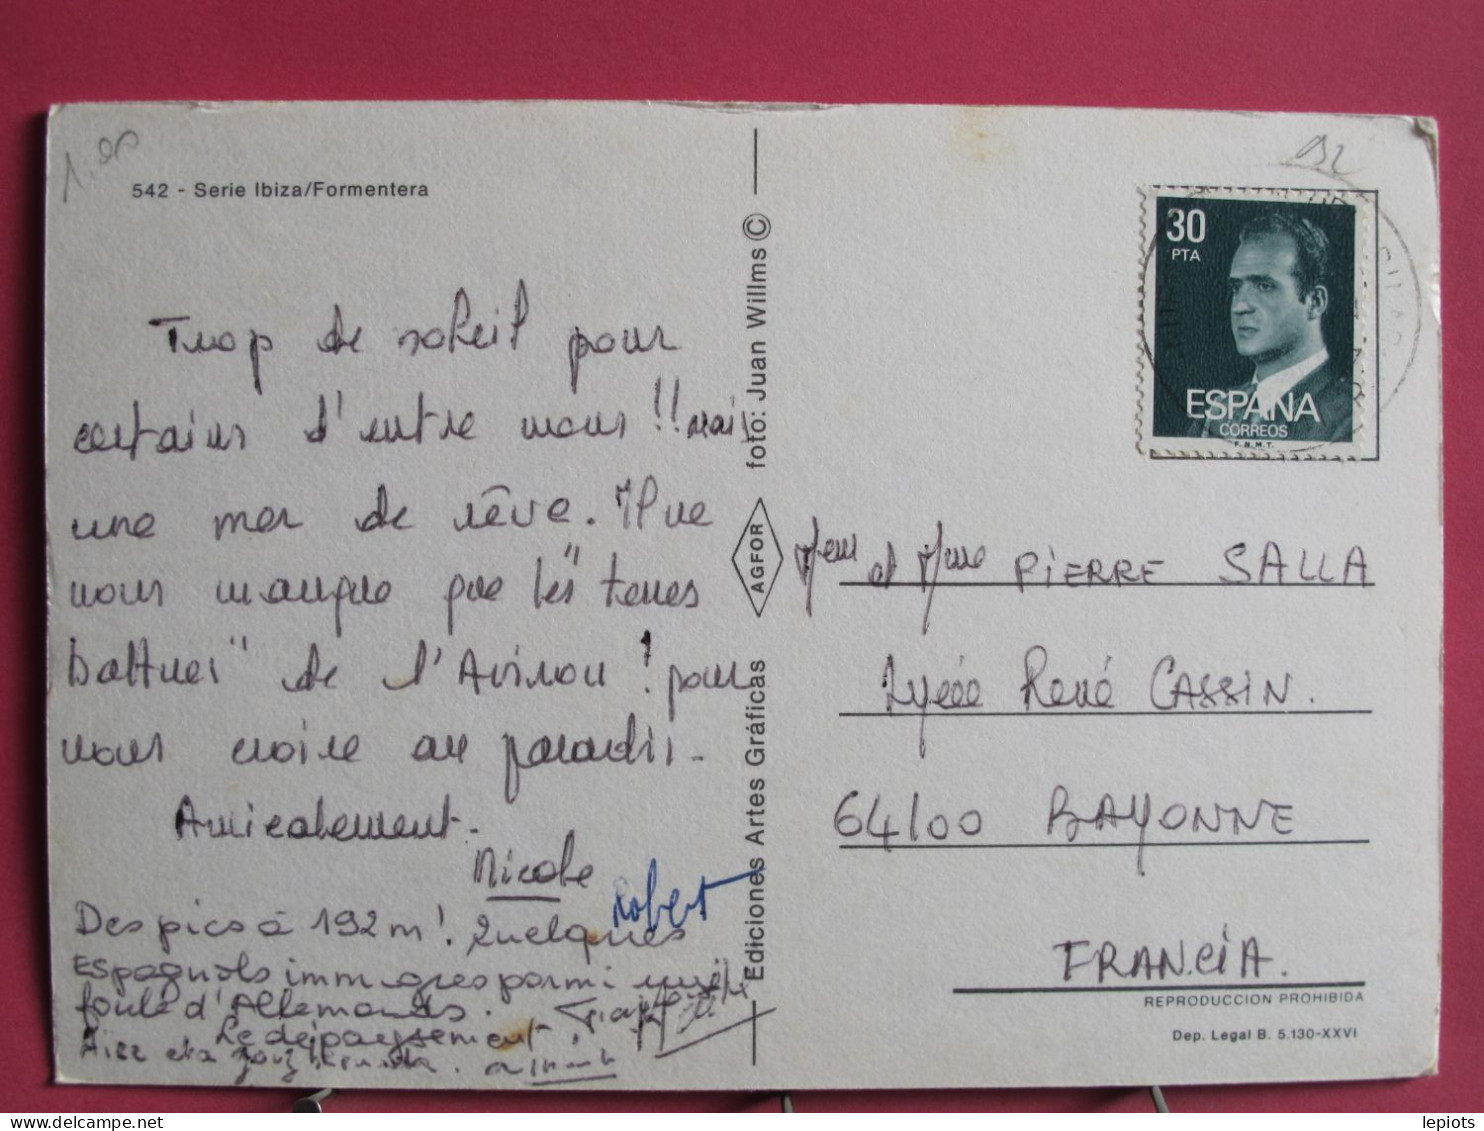 1.00
542 - Serie Ibiza/Formentera
Trop de soleil pour
certains d'entre nous !! mais
une mer de rêve. Il ne
nous manque que les "terres
battues" de l'Aviron ! pour
nous croire au paradis.
Amicalement.
Nicole
Robert
Des pics à 192 m! Quelques
Espagnols immergés parmi une
foule d'Allemands.
Le dépaysement
foto: Juan Willms ©
AGFOR
Ediciones Artes Gráficas
30
PTA
ESPAÑA
CORREOS
F.N.M.T.
Mr et Mme PIERRE SALLA
Lycée René CASSIN.
64100 BAYONNE
FRANCIA.
REPRODUCCION PROHIBIDA
Dep. Legal B. 5.130-XXVI
lepiots